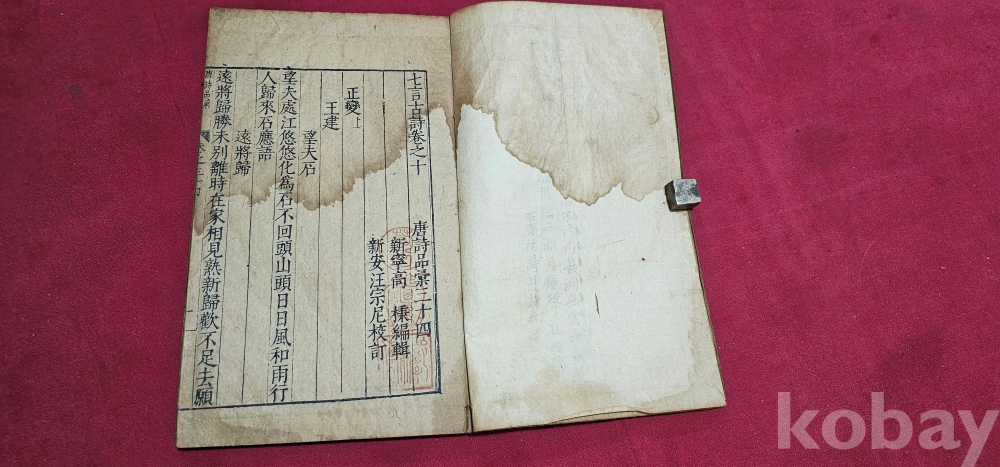 七言古詩卷之十
唐詩品彙三十四
新寧高 棅編輯
新安汪宗尼校訂
正變上
王建
望夫石
望夫處江悠悠化為石不回頭山頭日日風和雨行
人歸來石應語
遠將歸
遠將歸勝未別離時在家相見熟新歸歡不足去願
kobay